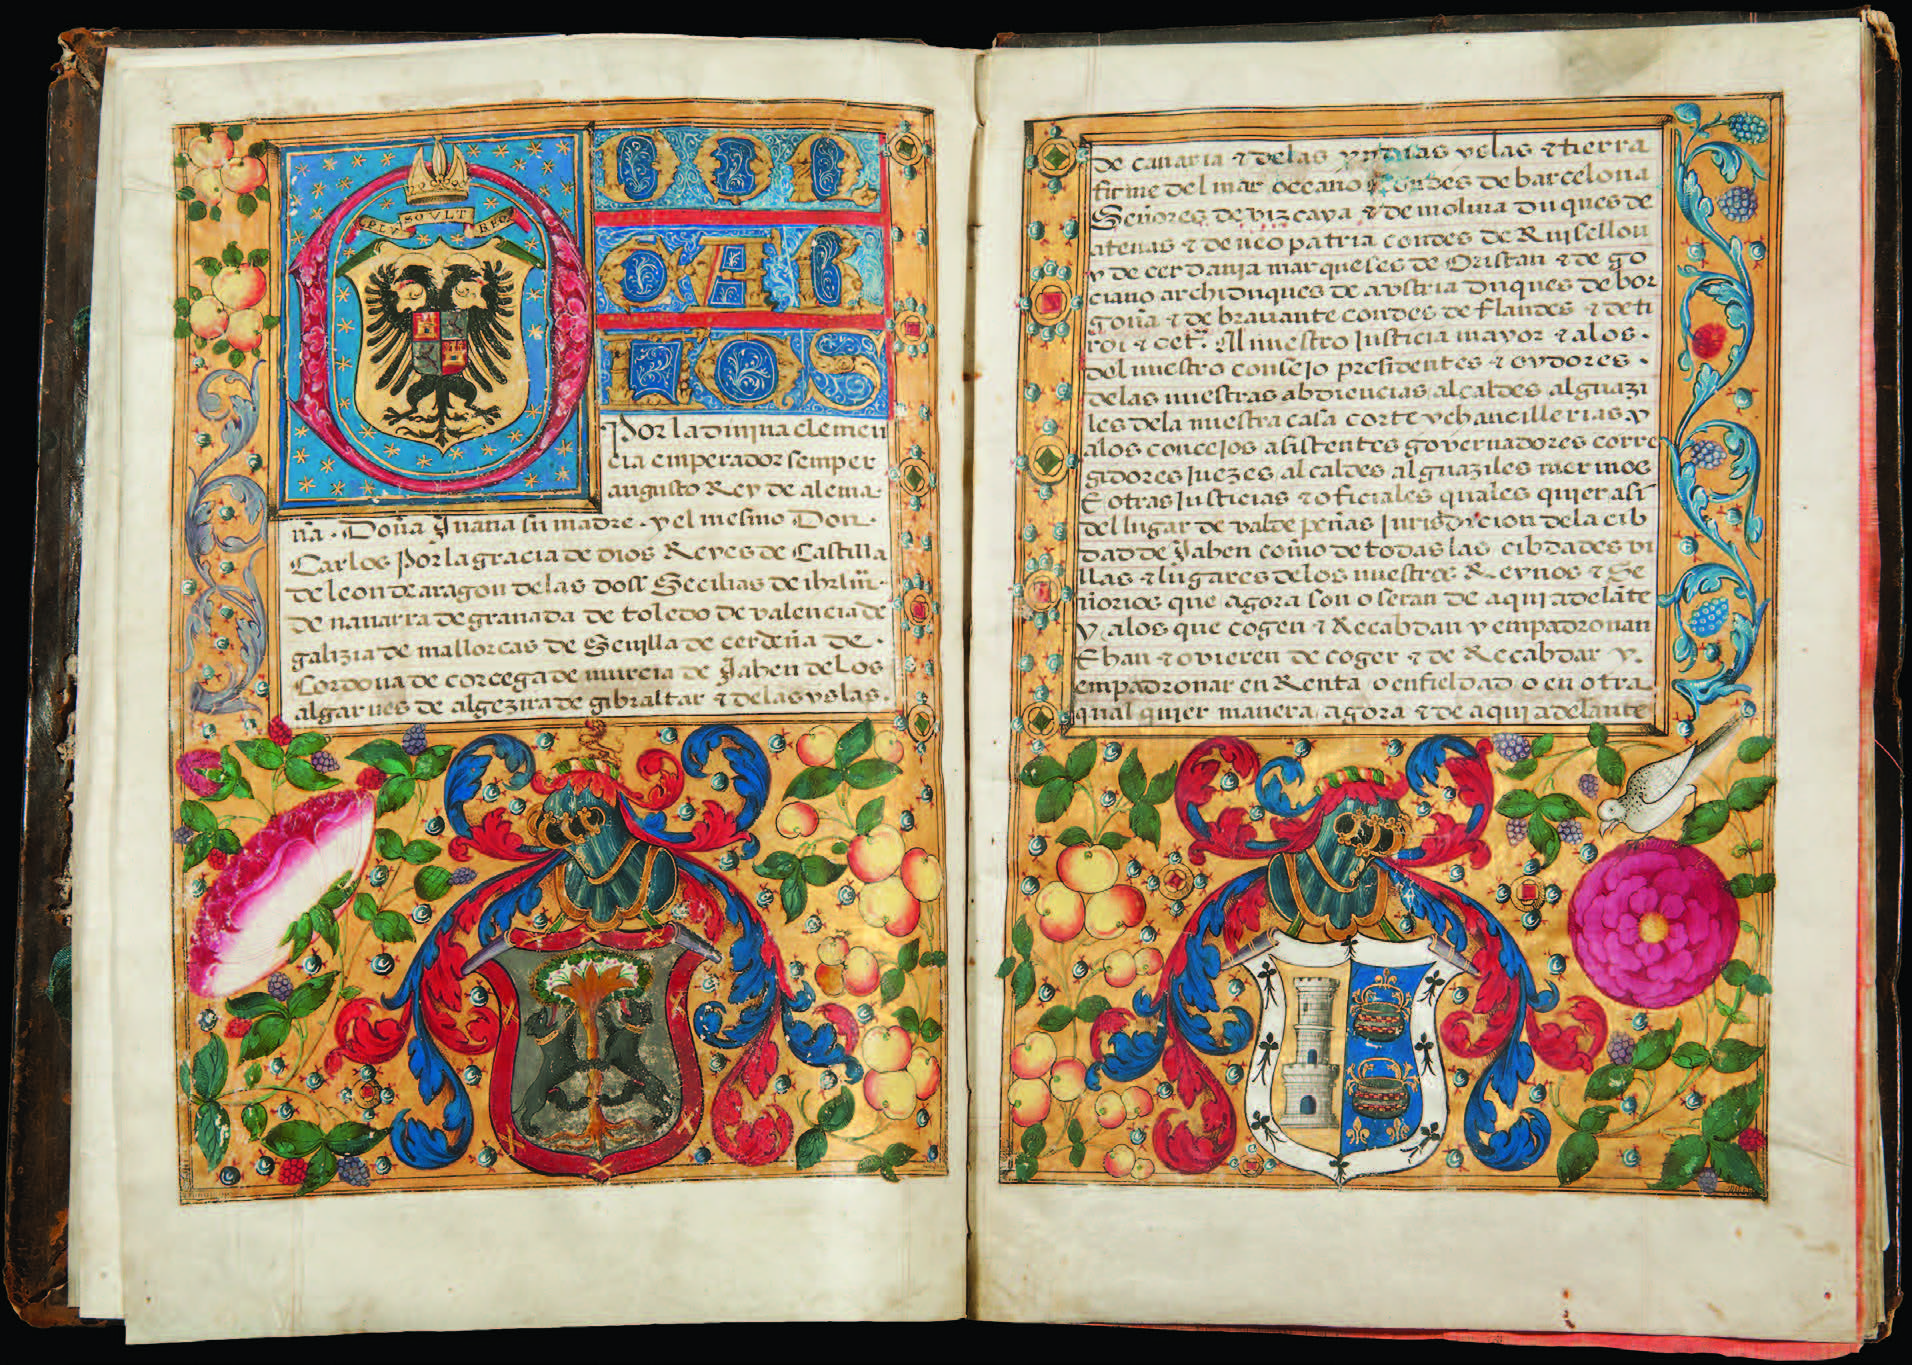 PLV SOVLT RFO
DON
CAR
LOS
Por la divina clemen
cia emperador semper
augusto Rey de alema·
ña · Doña Juana su madre · y el mesmo Don·
Carlos Por la gracia de dios Reyes de Castilla
de leon de aragon de las doss Secilias de ihrlm̄·
de navarra de granada de toledo de valencia de
galizia de mallorcas de Sevilla de cerdeña de ·
Cordova de corcega de murcia de Jahen de los
algarues de algezira de gibraltar & de las yslas·
de canaria & de las yndias yslas & tierra
firme del mar oceano condes de barcelona
Señores de vizcaya & de molina duques de
atenas & de neopatria condes de Ruisellon
y de cerdania marqueses de Oristan & de go
ciano archiduques de avstria duques de bor
goña & de bravante condes de flandes & de ti
rol & cet.ª Al nuestro Justicia mayor & a los ·
del nuestro consejo presidentes & oydores ·
de las nuestras abdiencias alcaldes alguazi
les dela nuestra casa corte y chancillerias y
a los concejos asistentes governadores corre
gidores Juezes alcaldes alguaziles merinos
E otras Justicias & oficiales quales quier asi
del lugar de valde peñas Jurisdicion dela cib
dad de Jahen como de todas las cibdades vi
llas & lugares de los nuestros Reynos & Se
ñorios que agora son o seran de aqui adelāte
y a los que cogen & Recabdan y empadronan
E han & ovieren de coger & de Recabdar y·
empadronar en Renta o en fieldad o en otra
qual quier manera agora & de aqui adelante